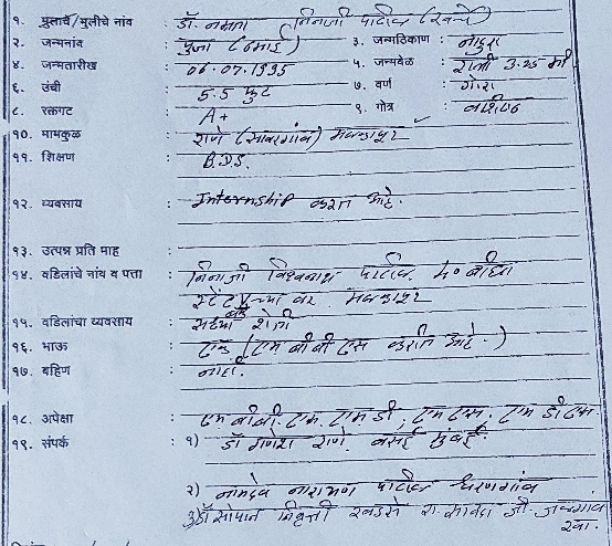 १. मुलाचे/मुलीचे नांव : डॉ. नम्रता निनाजी पाटील (खर्चे)
२. जन्मनांव : पुजा (ढमाई) ३. जन्मठिकाण : नांदुरा
४. जन्मतारीख : 06.07.1995 ५. जन्मवेळ : रात्री 3.25 मी
६. उंची : 5.5 फुट ७. वर्ण : गोरा
८. रक्तगट : A+ ९. गोत्र : वशिष्ठ
१०. मामकुळ : राणे (सावरगांव) मलकापूर
११. शिक्षण : B.D.S.
१२. व्यवसाय : Internship करत आहे.
१३. उत्पन्न प्रति माह :
१४. वडिलांचे नांव व पत्ता : निनाजी विश्वनाथ पाटील.
मलकापूर
१५. वडिलांचा व्यवसाय : सध्या शेती
१६. भाऊ : एक (एम बी बी एस करीत आहे.)
१७. बहिण : नाही.
१८. अपेक्षा : एम बी बी. एस. एम. डी, एम एस. एम डी एस
१९. संपर्क : १) डॉ गणेश राणे. वसई मुंबई.
२) नामदेव नारायण पाटील धरणगांव
३) डॉ सोपान खडसे रा. जी. जळगांव